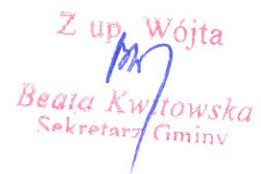 Z up. Wójta
Beata Kwitowska
Sekretarz Gminy